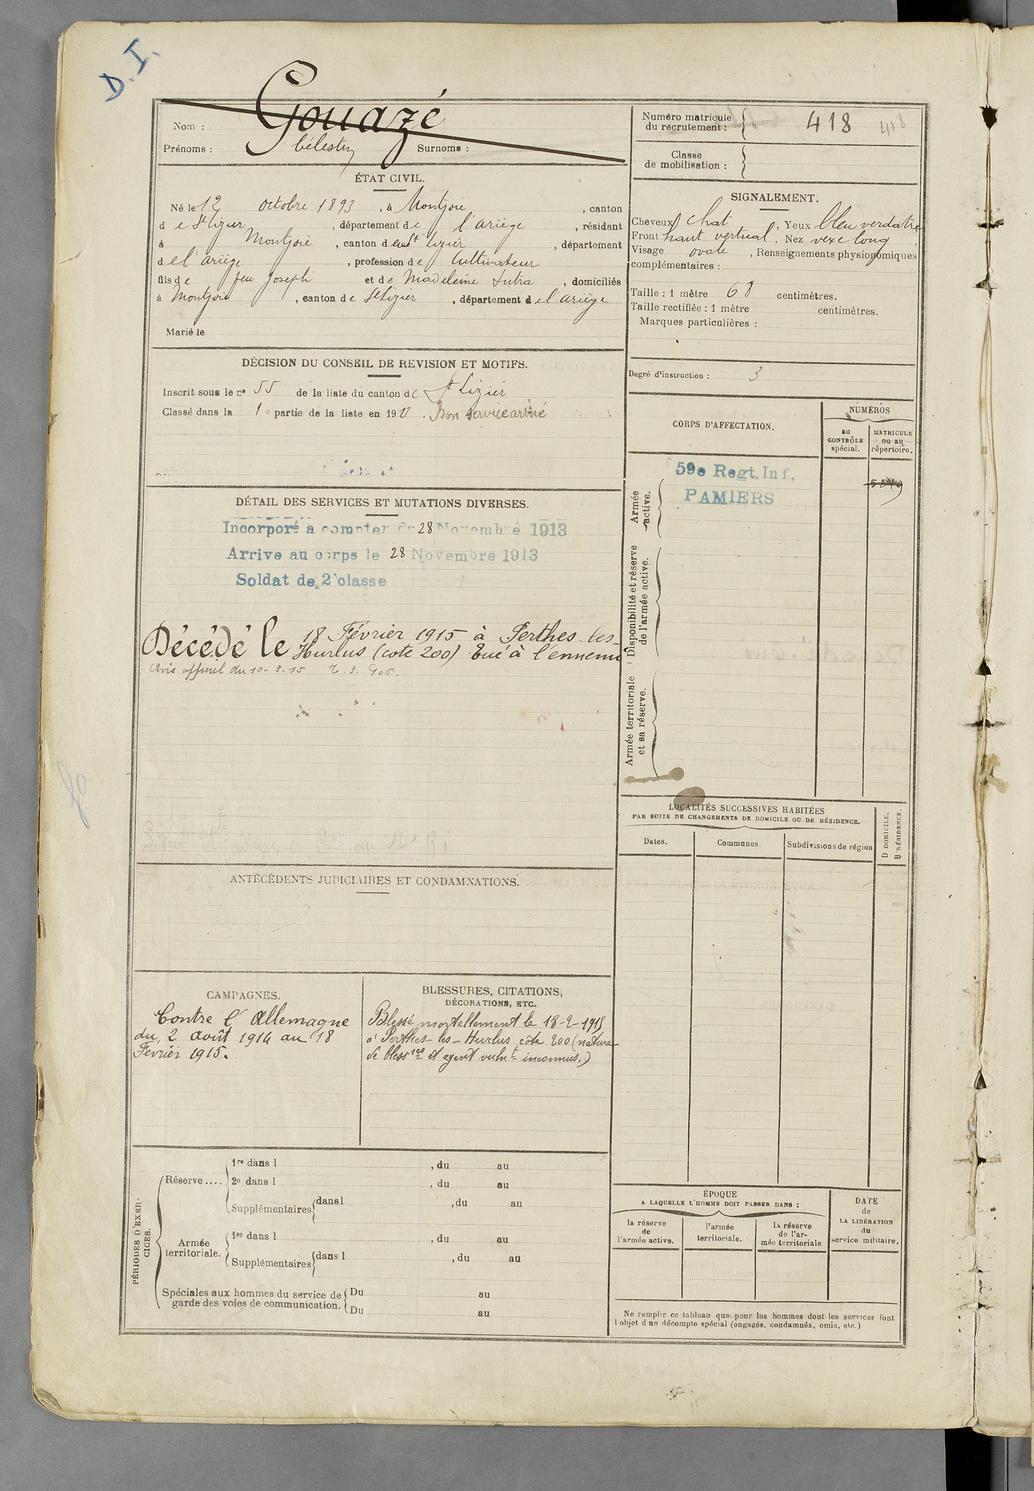 D. I.
Nom : Gouazé
Prénoms : Célestin Surnoms :
Numéro matricule
du recrutement : 418
418
Classe
de mobilisation :
ÉTAT CIVIL.
Né le 12 Octobre 1893, à Montjoie, canton
de St Lizier, département de l'Ariège, résidant
à Montjoie, canton de St Lizier, département
de l'Ariège, profession de Cultivateur
fils de feu Joseph et de Madeleine Sutra, domiciliés
à Montjoie, canton de St Lizier, département de l'Ariège
Marié le
SIGNALEMENT.
Cheveux chat, Yeux bleu verdatre
Front haut vertical, Nez vexe long
Visage ovale, Renseignements physionomiques
complémentaires :
Taille : 1 mètre 68 centimètres.
Taille rectifiée : 1 mètre centimètres.
Marques particulières :
Degré d'instruction : 3
DÉCISION DU CONSEIL DE REVISION ET MOTIFS.
Inscrit sous le n° 55 de la liste du canton de St Lizier
Classé dans la 1e partie de la liste en 19 Bon service armé
CORPS D'AFFECTATION.
NUMÉROS
au
CONTRÔLE
spécial.
MATRICULE
ou au
répertoire.
Armée
active.
59e Regt. Inf.
PAMIERS
Disponibilité et réserve
de l'armée active.
Armée territoriale
et sa réserve.
DÉTAIL DES SERVICES ET MUTATIONS DIVERSES.
Incorporé à compter du 28 Novembre 1913
Arrive au corps le 28 Novembre 1913
Soldat de 2e classe
Décédé le 18 Février 1915 à Perthes-les-
Hurlus (cote 200) Tué à l'ennemi
Avis officiel du 10-3-15
LOCALITÉS SUCCESSIVES HABITÉES
PAR SUITE DE CHANGEMENTS DE DOMICILE OU DE RÉSIDENCE.
Dates.
Communes.
Subdivisions de région
D DOMICILE.
R RÉSIDENCE.
ANTÉCÉDENTS JUDICIAIRES ET CONDAMNATIONS.
CAMPAGNES.
Contre l'Allemagne
du 2 août 1914 au 18
Février 1915.
BLESSURES, CITATIONS,
DÉCORATIONS, ETC.
Blessé mortellement le 18-2-1915
à Perthes-les-Hurlus côte 200 (nature
de bless et agent vulnt inconnus.)
PÉRIODES D'EXER-
CICES.
Réserve....
1re dans l , du au
2e dans l , du au
Supplémentaires dans l , du au
Armée
territoriale.
1re dans l , du au
Supplémentaires dans l , du au
Spéciales aux hommes du service de
garde des voies de communication.
Du au
Du au
ÉPOQUE
A LAQUELLE L'HOMME DOIT PASSER DANS :
la réserve
de
l'armée active.
l'armée
territoriale.
la réserve
de l'ar-
mée territoriale
DATE
de
LA LIBÉRATION
du
service militaire.
Ne remplir ce tableau que pour les hommes dont les services font
l'objet d'un décompte spécial (engagés, condamnés, omis, etc.)